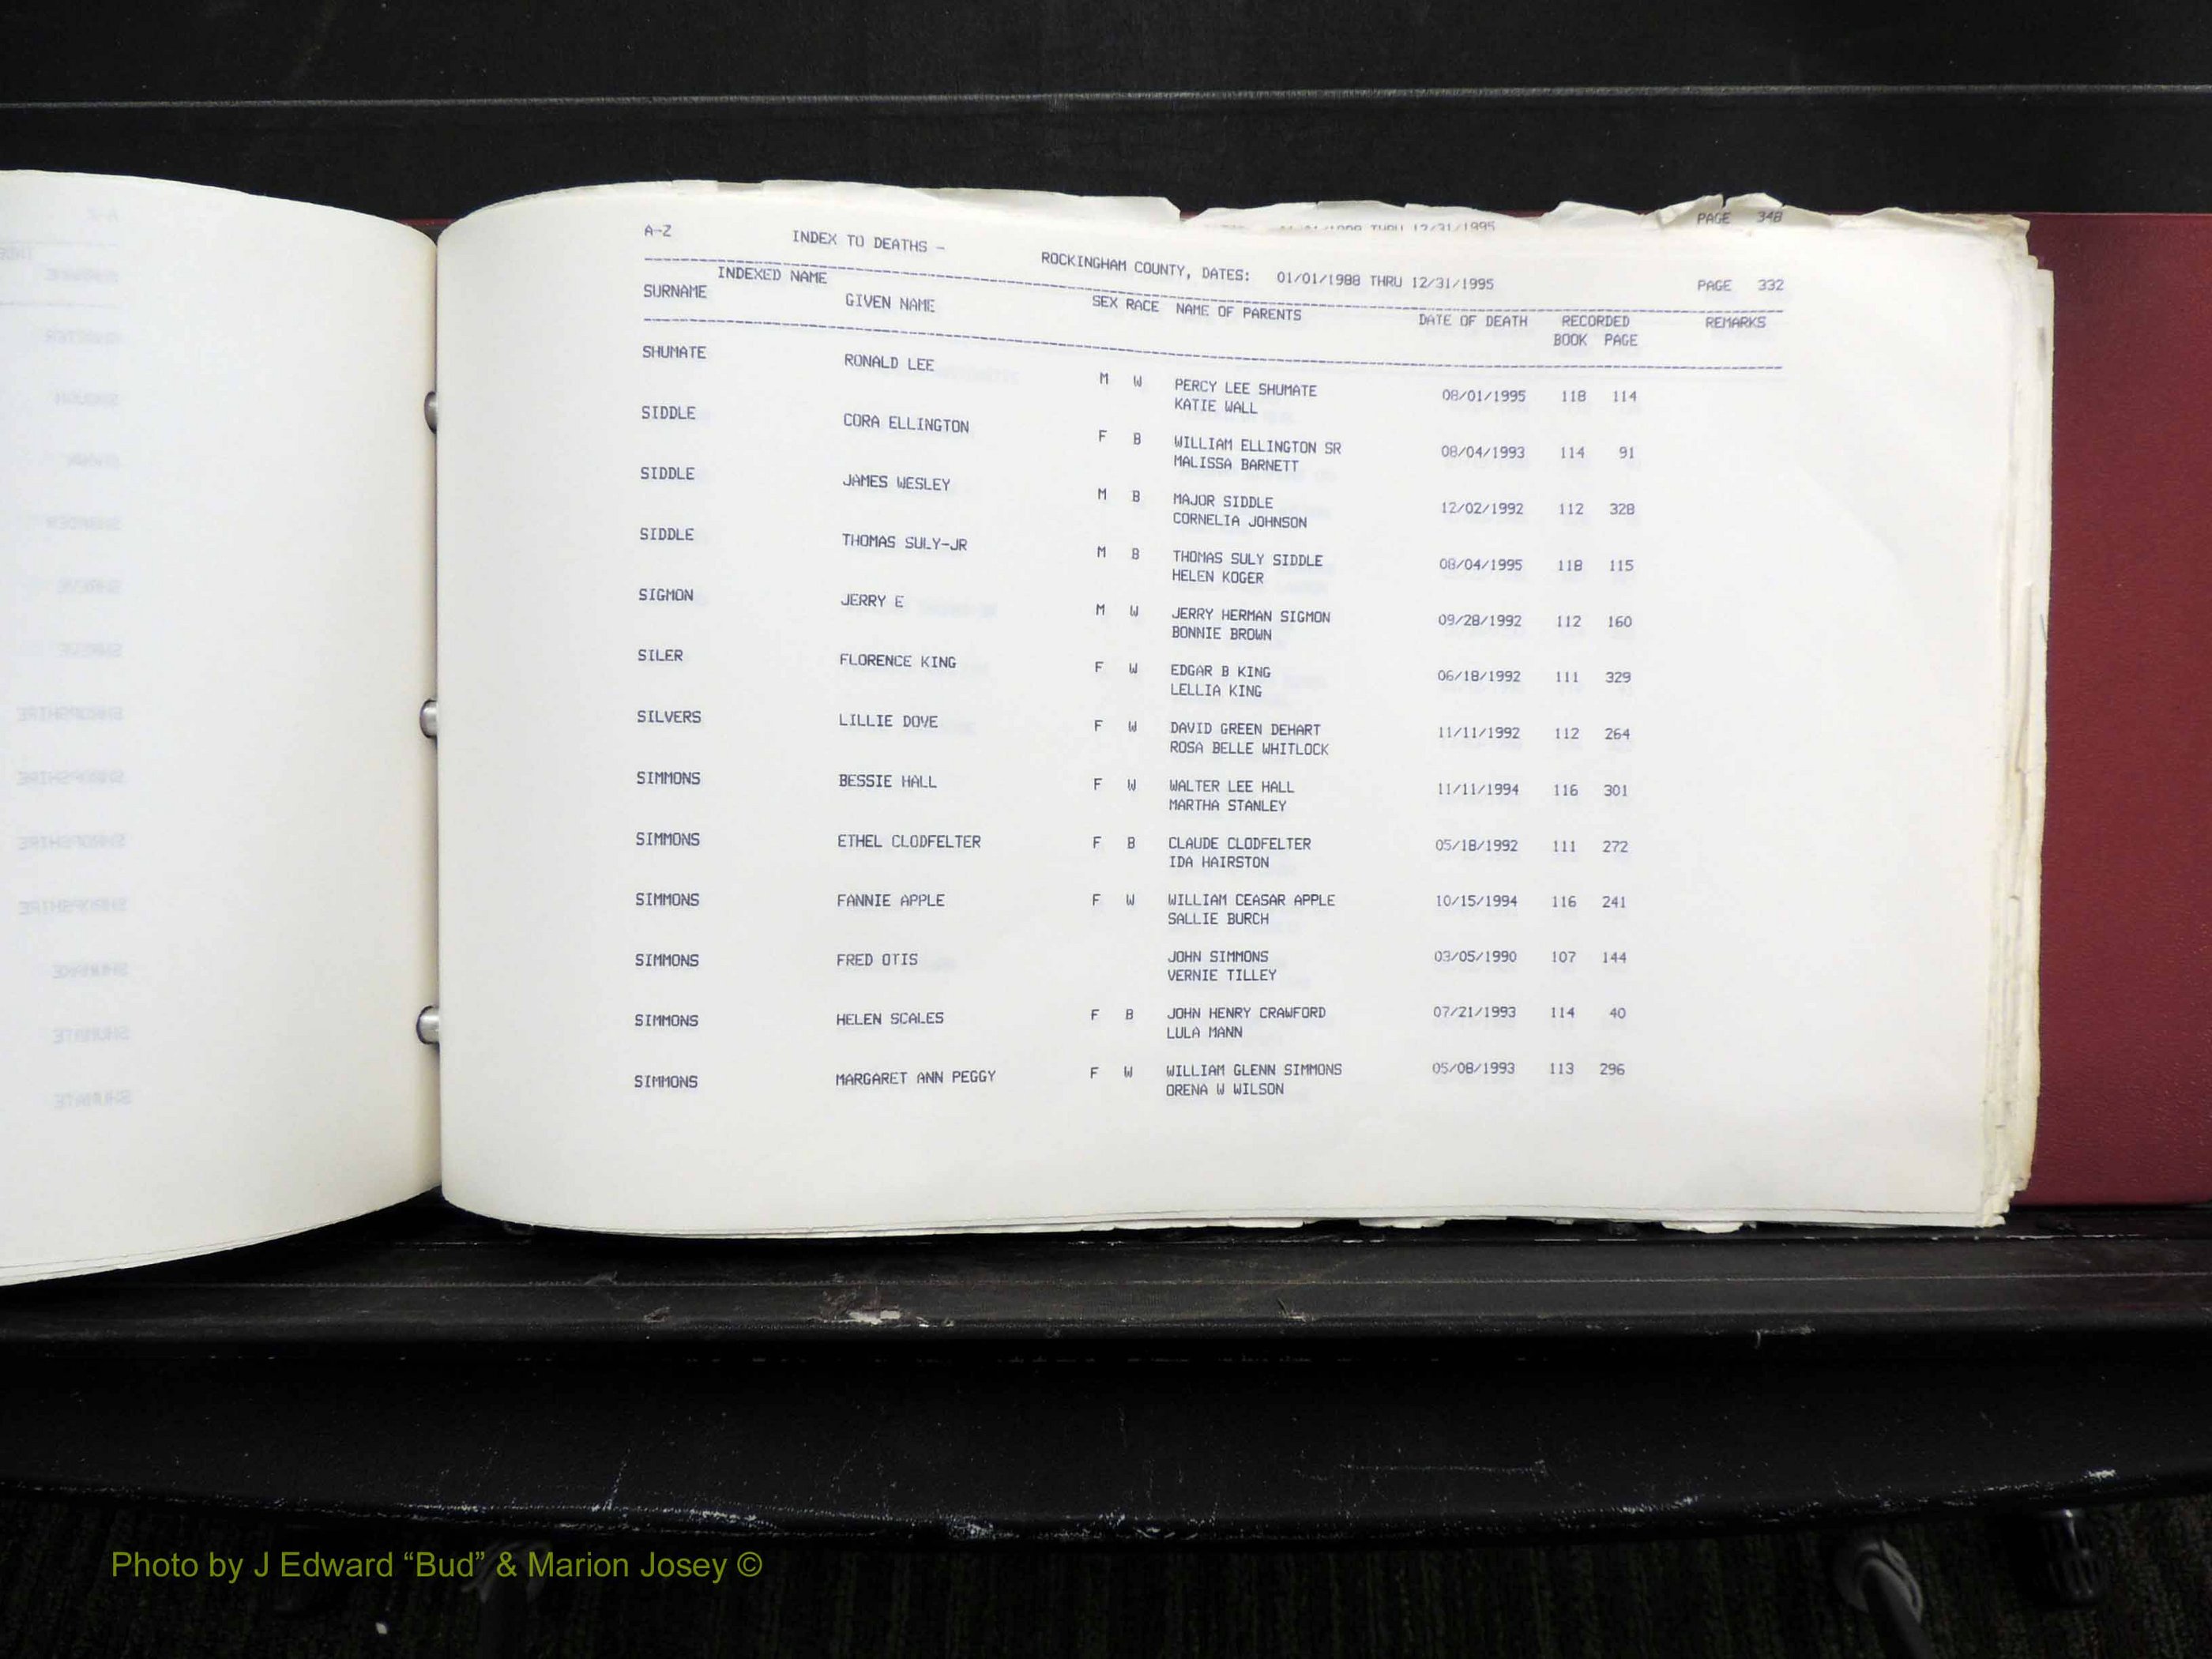 THRU 12/31/1995 PAGE 348
A-Z INDEX TO DEATHS - ROCKINGHAM COUNTY, DATES: 01/01/1988 THRU 12/31/1995 PAGE 332
INDEXED NAME
SURNAME GIVEN NAME SEX RACE NAME OF PARENTS DATE OF DEATH RECORDED REMARKS
BOOK PAGE
SHUMATE RONALD LEE M W PERCY LEE SHUMATE 08/01/1995 118 114
KATIE WALL
SIDDLE CORA ELLINGTON F B WILLIAM ELLINGTON SR 08/04/1993 114 91
MALISSA BARNETT
SIDDLE JAMES WESLEY M B MAJOR SIDDLE 12/02/1992 112 328
CORNELIA JOHNSON
SIDDLE THOMAS SULY-JR M B THOMAS SULY SIDDLE 08/04/1995 118 115
HELEN KOGER
SIGMON JERRY E M W JERRY HERMAN SIGMON 09/28/1992 112 160
BONNIE BROWN
SILER FLORENCE KING F W EDGAR B KING 06/18/1992 111 329
LELLIA KING
SILVERS LILLIE DOVE F W DAVID GREEN DEHART 11/11/1992 112 264
ROSA BELLE WHITLOCK
SIMMONS BESSIE HALL F W WALTER LEE HALL 11/11/1994 116 301
MARTHA STANLEY
SIMMONS ETHEL CLODFELTER F B CLAUDE CLODFELTER 05/18/1992 111 272
IDA HAIRSTON
SIMMONS FANNIE APPLE F W WILLIAM CEASAR APPLE 10/15/1994 116 241
SALLIE BURCH
SIMMONS FRED OTIS JOHN SIMMONS 03/05/1990 107 144
VERNIE TILLEY
SIMMONS HELEN SCALES F B JOHN HENRY CRAWFORD 07/21/1993 114 40
LULA MANN
SIMMONS MARGARET ANN PEGGY F W WILLIAM GLENN SIMMONS 05/08/1993 113 296
ORENA W WILSON
Photo by J Edward “Bud” & Marion Josey ©